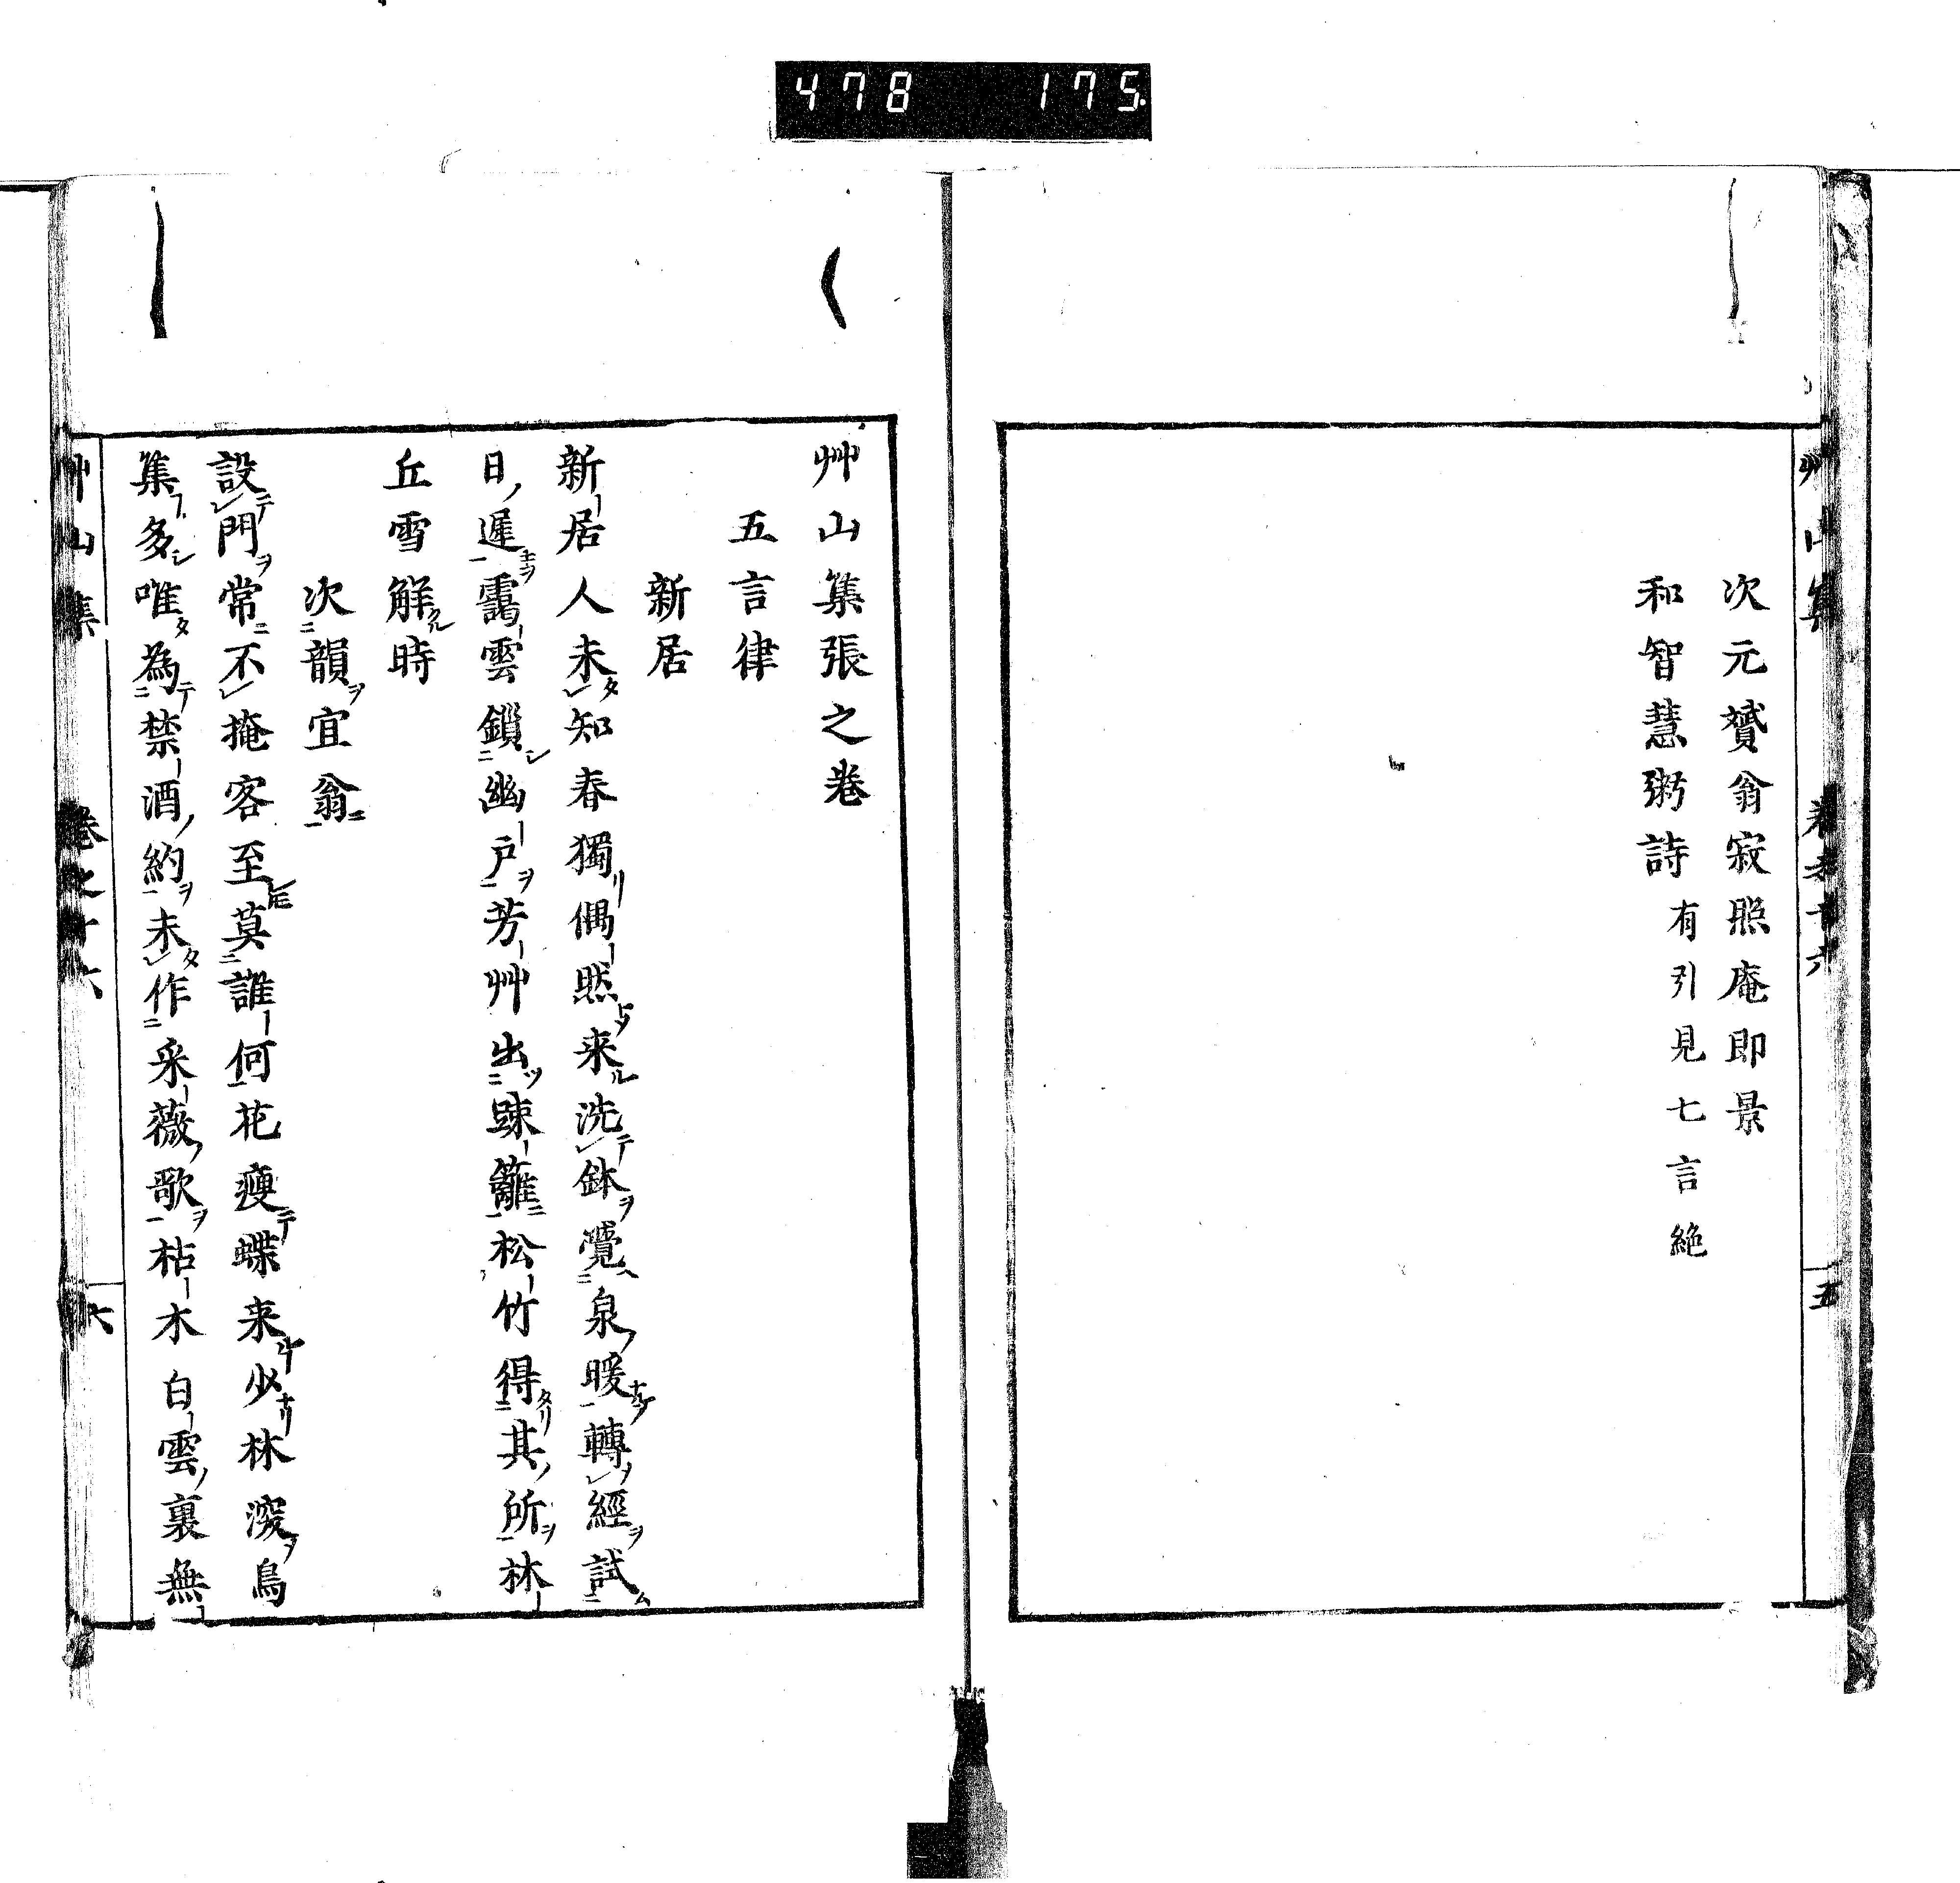 478 175
艸山集 卷之十六 五
次元贇翁寂照庵即景
和智慧粥詩有引見七言絶
艸山集張之卷
五言律
新居
新居人未知春獨偶然来洗鉢覺泉暖轉經試
日遲靄雲鎖幽戸芳艸出踈籬松竹得其所林
丘雪解時
次韻宜翁
設門常不掩客至莫誰何花瘦蝶来少林深鳥
集多唯為禁酒約未作采薇歌枯木白雲裏無
艸山集 卷之十六 六